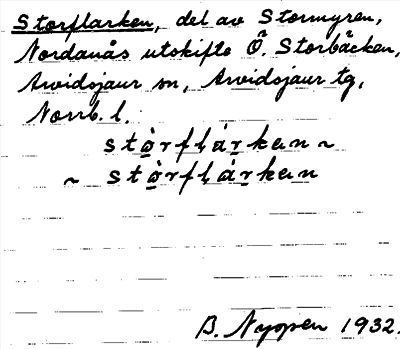 Storflarken, del av Stormyren,
Nordanås utskifte Ö. Storbäcken,
Arvidsjaur sn, Arvidsjaur tg,
Norrb. l.
stò̱rflȧṟkan ~
~ stò̱rflȧṟkɐn
B. Nyopen 1932.